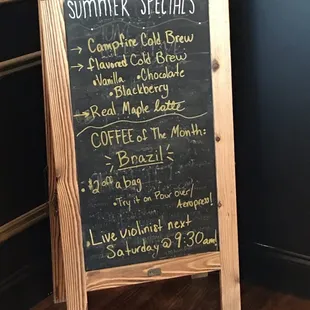 SUMMER SPECIALS
→ Campfire Cold Brew
→ flavored Cold Brew
• Vanilla • Chocolate
• Blackberry
→ Real Maple latte
COFFEE of The Month:
Brazil
• $2 off a bag
• Try it on Pour over/
Aeropress!
• Live violinist next
Saturday @ 9:30am!